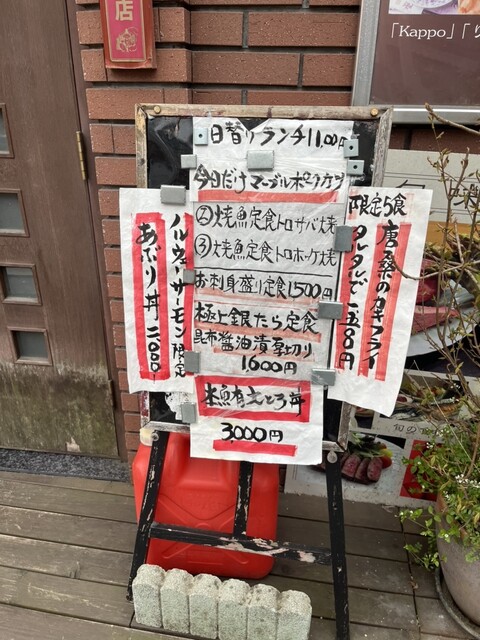 店
「Kappo」「り
日替りランチ1100円
今日だけマーブルポークカツ
②焼魚定食トロサバ焼
③焼魚定食トロホッケ焼
お刺身盛り定食1,500円
極上銀たら定食
昆布醤油漬厚切り
1,600円
本鮪有大とろ丼
3,000円
限定5食
唐桑のカキフライ
タルタルで一五〇〇円
ノルウェーサーモン限定
あぶり丼二〇〇〇
旬の